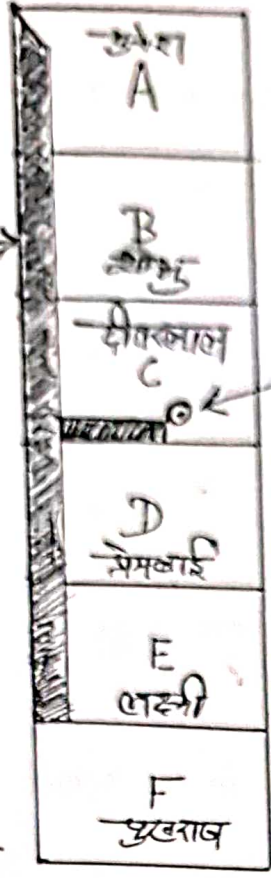 A
B
शम्भु
दीतरलाल
C
D
प्रेमबाई
E
लक्ष्मी
F
पुखराज